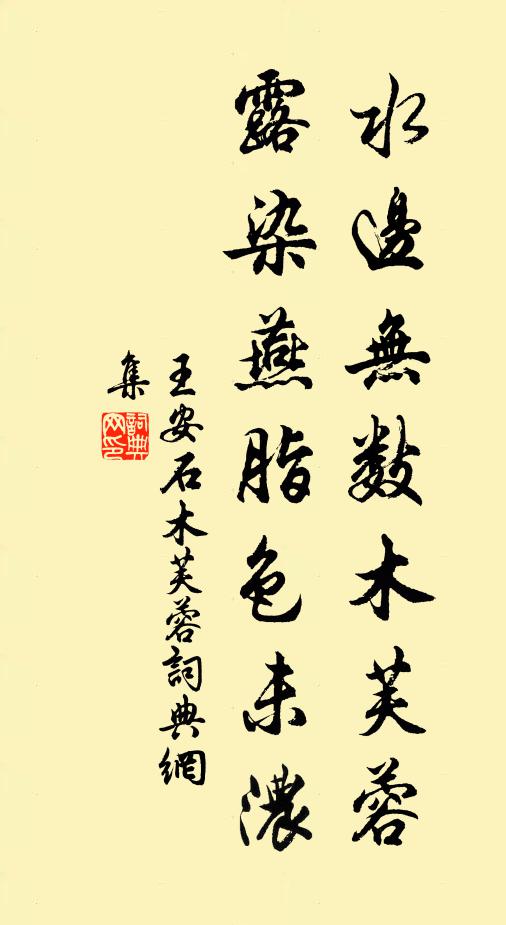 水邊無数木芙蓉
露染燕脂色未濃
王安石木芙蓉詞典網
集
詞典网印